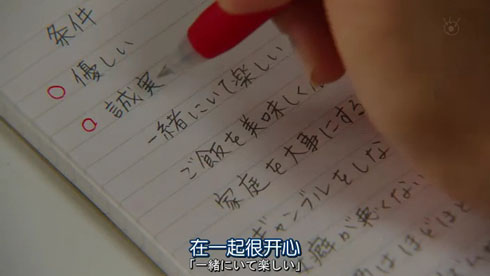 条件
優しい
誠実
一緒にいて楽しい
ご飯を美味しく
家庭を大事にする
ギャンブルをしな
癖が悪くない
はほどほど
在一起很开心
「一緒にいて楽しい」